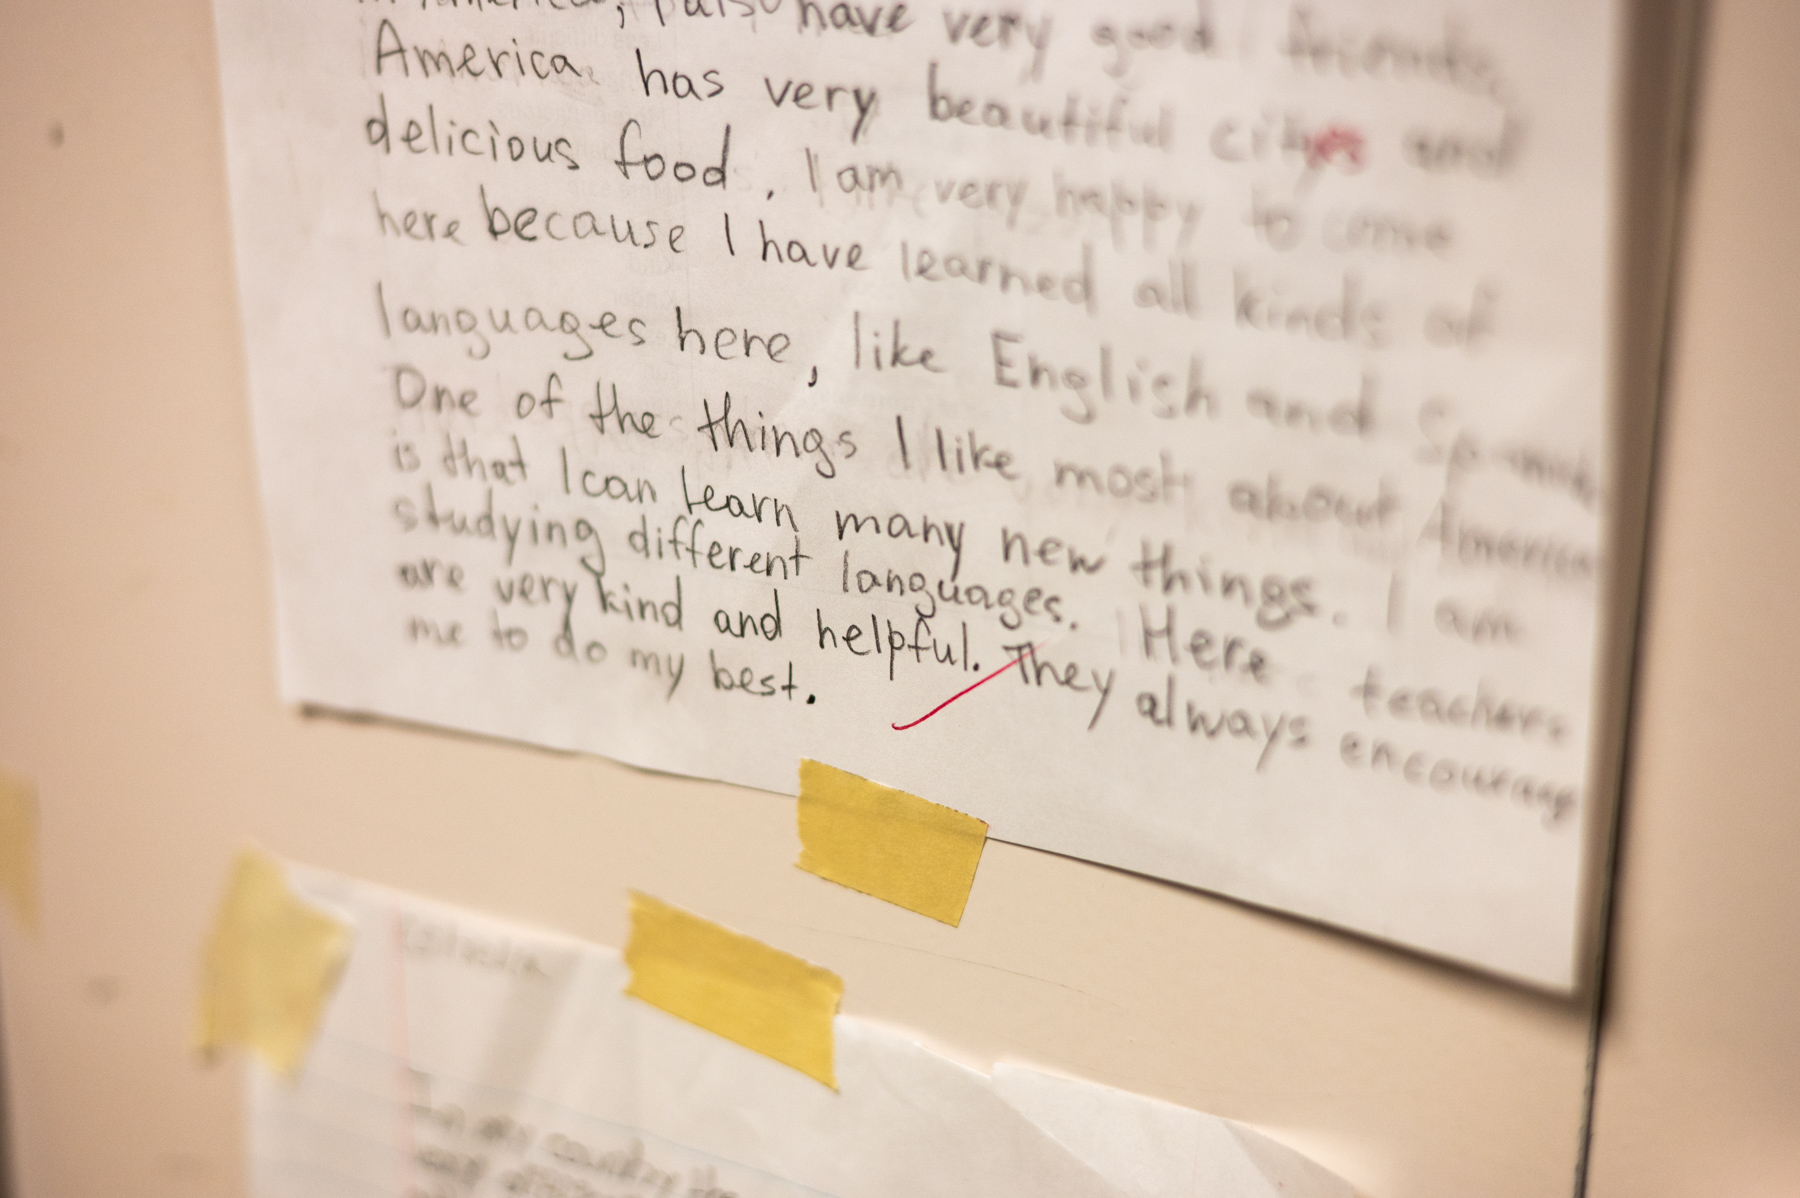 in America, I also have very good friends.
America has very beautiful cities and
delicious food. I am very happy to come
here because I have learned all kinds of
languages here, like English and Spanish.
One of the things I like most about America
is that I can learn many new things. I am
studying different languages. Here teachers
are very kind and helpful. They always encourage
me to do my best.
In my country the